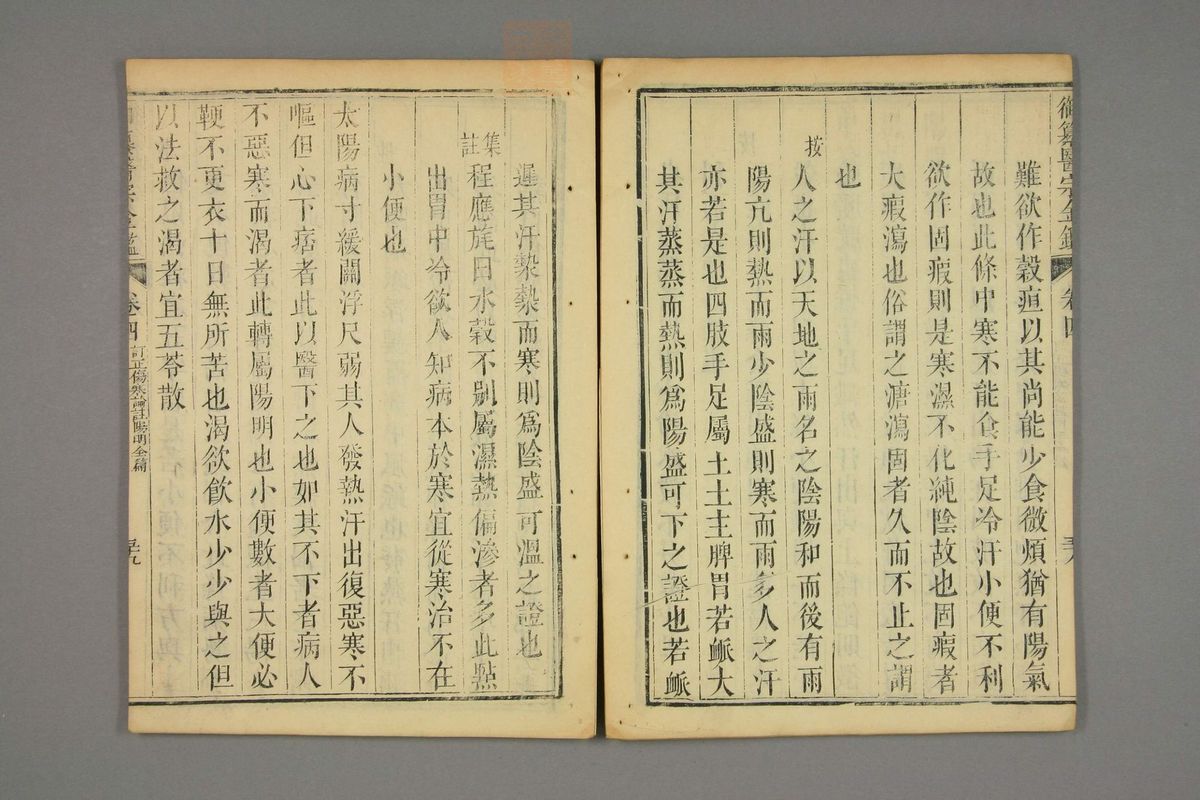 御纂醫宗金鑑 卷四
難欲作穀疸以其尚能少食微煩猶有陽氣
故也此條中寒不能食手足冷汗小便不利
欲作固瘕則是寒濕不化純陰故也固瘕者
大瘕瀉也俗謂之溏瀉固者久而不止之謂
也
按人之汗以天地之雨名之陰陽和而後有雨
陽亢則熱而雨少陰盛則寒而雨多人之汗
亦若是也四肢手足屬土土主脾胃若脈大
其汗蒸蒸而熱則爲陽盛可下之證也若脈
遲其汗漐漐而寒則爲陰盛可溫之證也
集註程應旄曰水穀不別屬濕熱偏滲者多此點
出胃中冷欲人知病本於寒宜從寒治不在
小便也
太陽病寸緩關浮尺弱其人發熱汗出復惡寒不
嘔但心下痞者此以醫下之也如其不下者病人
不惡寒而渴者此轉屬陽明也小便數者大便必
鞕不更衣十日無所苦也渴欲飲水少少與之但
以法救之渴者宜五苓散
醫宗金鑑 卷四 訂正傷寒論註陽明全篇